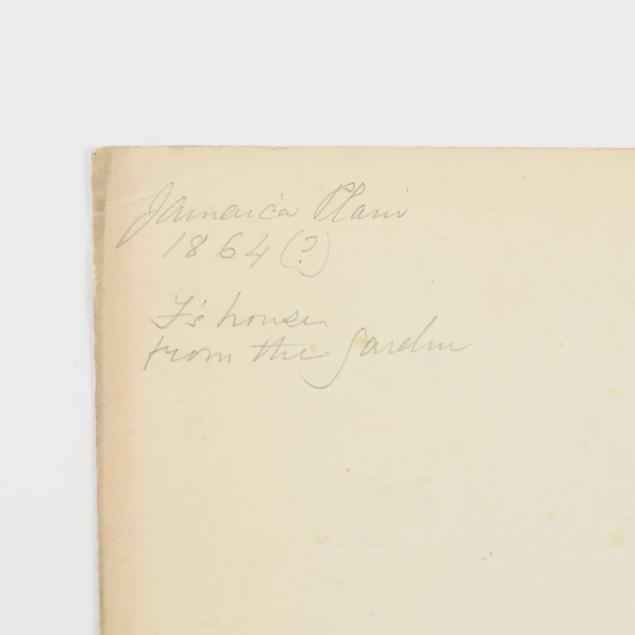 Jamaica Plain
1864 (?)
F's house
from the garden